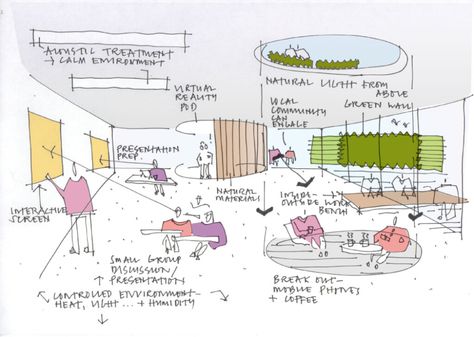 ACOUSTIC TREATMENT
→ CALM ENVIRONMENT
VIRTUAL
REALITY
POD
NATURAL LIGHT FROM
ABOVE
LOCAL
COMMUNITY
CAN
ENGAGE
GREEN WALL
PRESENTATION
PREP.
NATURAL
MATERIALS
INSIDE-
OUTSIDE WORK
BENCH
INTERACTIVE
SCREEN
SMALL GROUP
DISCUSSION/
PRESENTATION
CONTROLLED ENVIRONMENT-
HEAT, LIGHT ... + HUMIDITY
BREAK OUT-
MOBILE PHONES
+ COFFEE